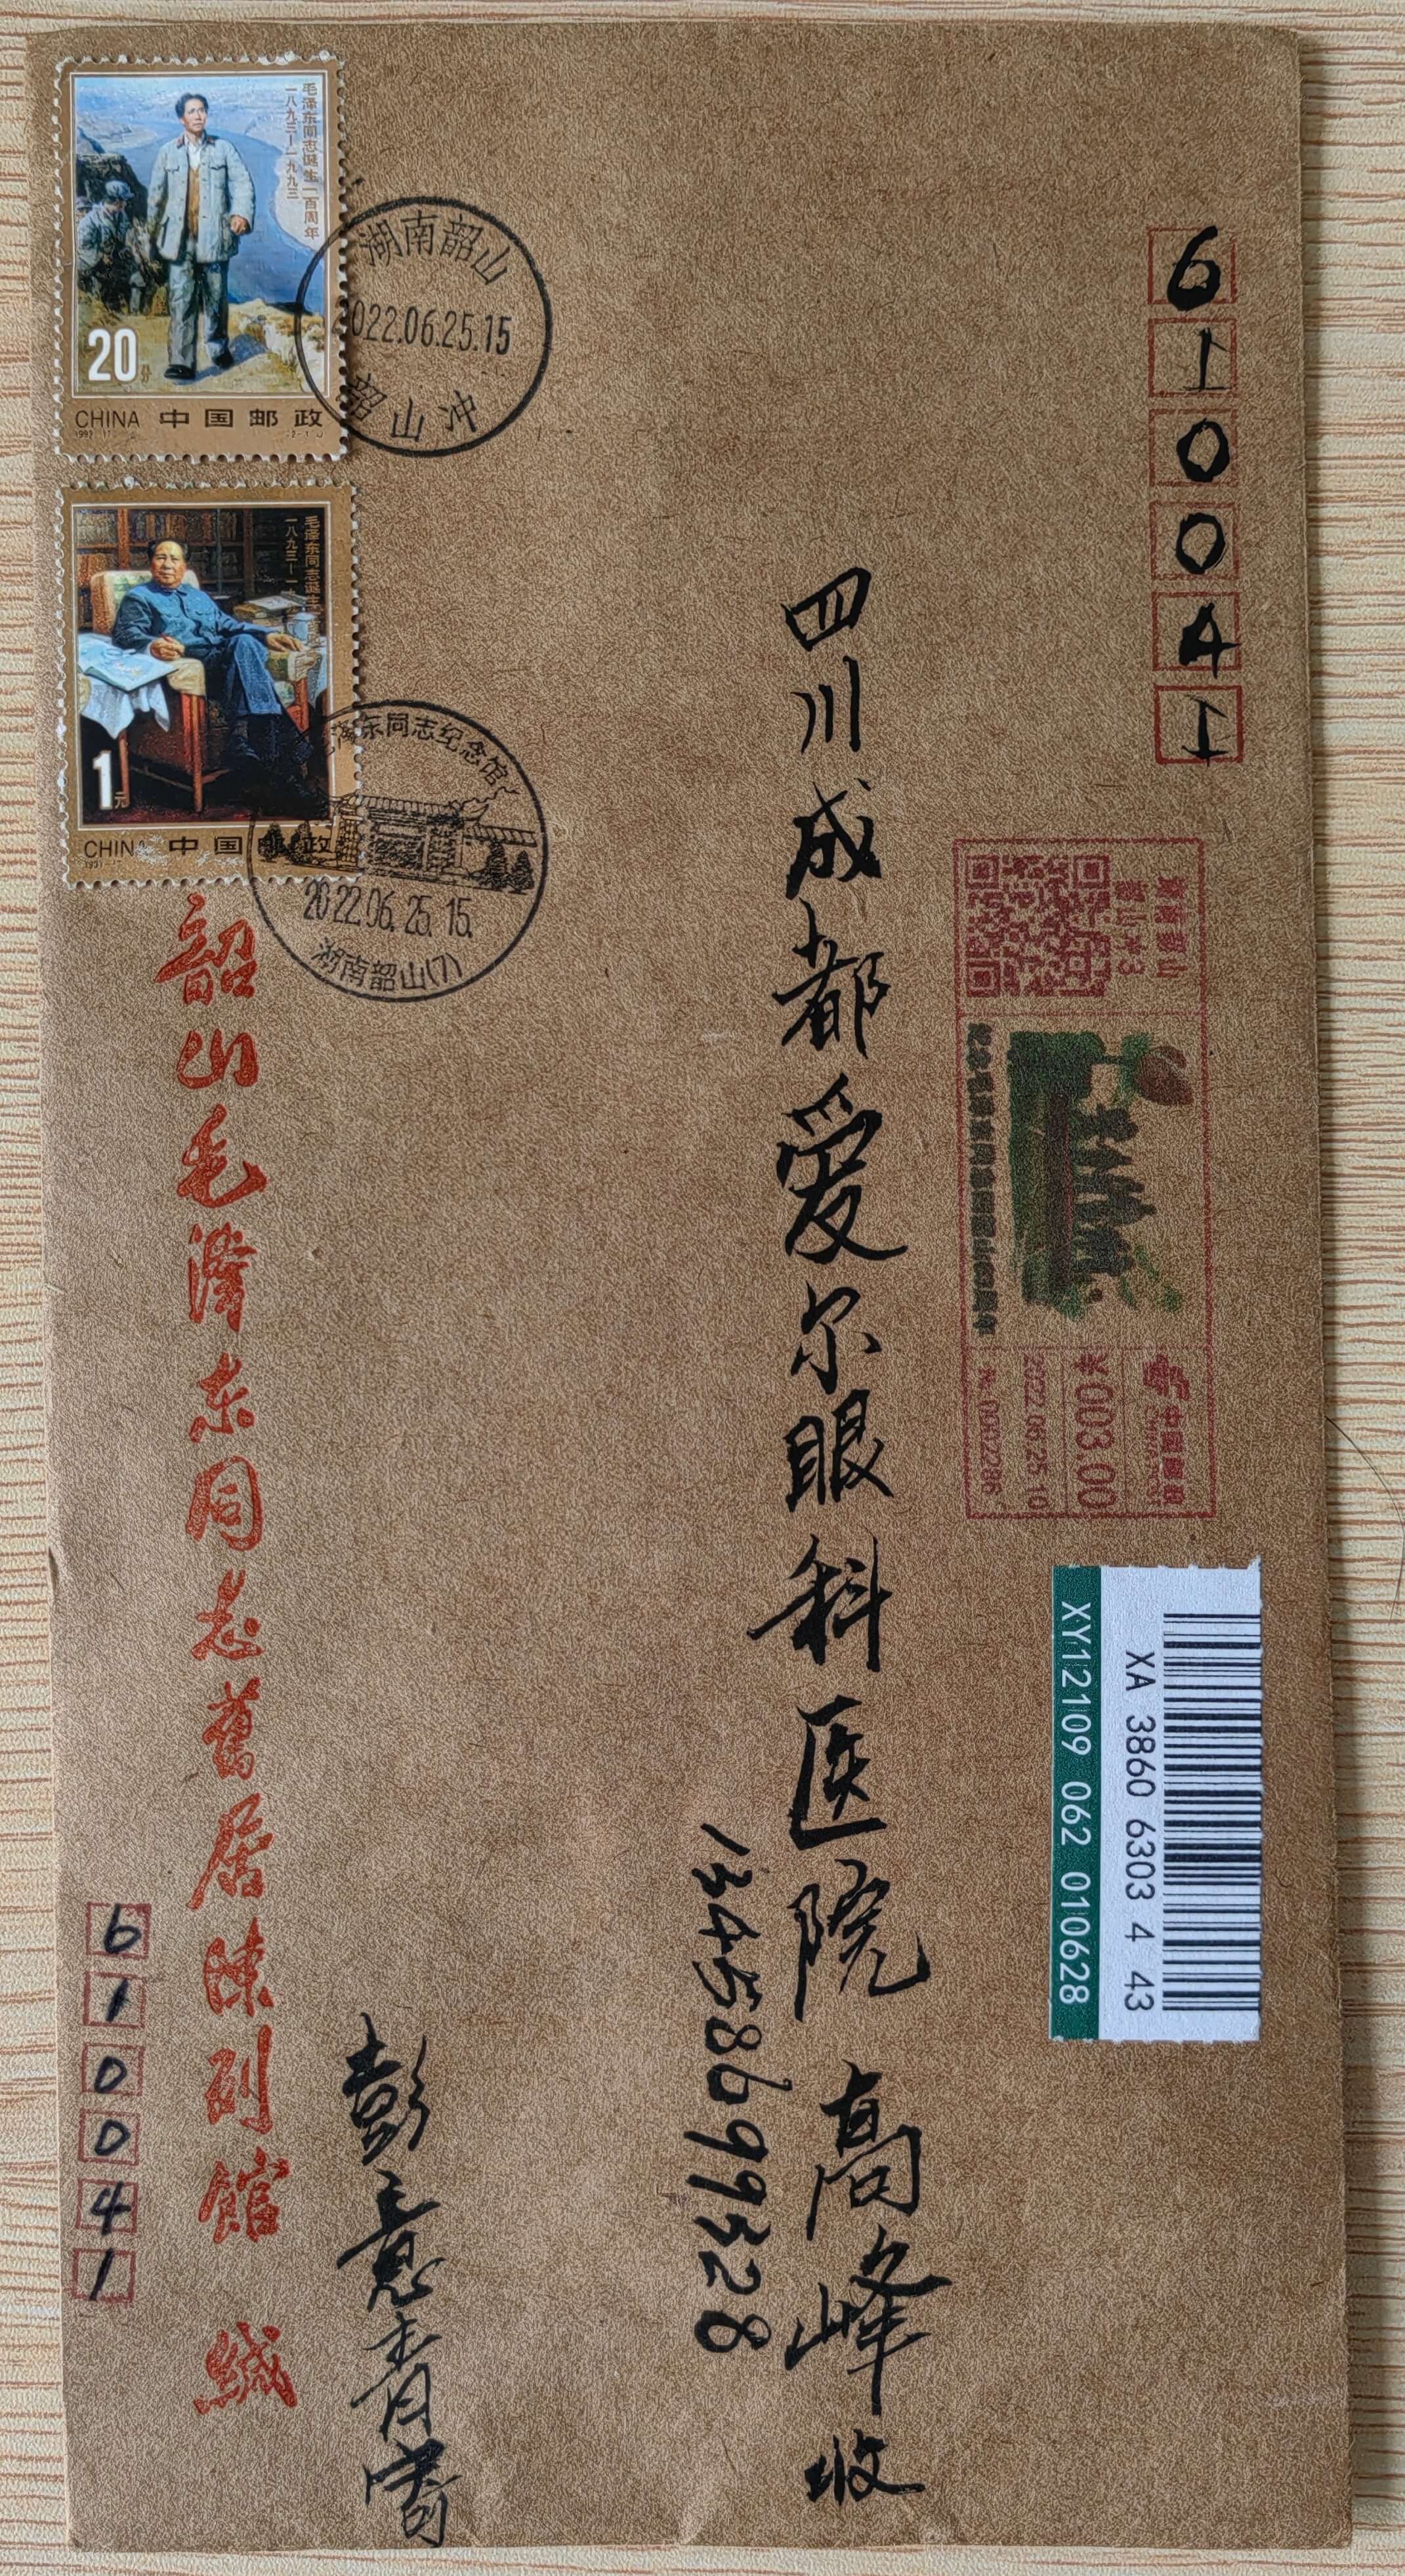 610041
四川成都爱尔眼科医院 高峰 收
13458699328
毛泽东同志诞生一百周年
一八九三—一九九三
20分
CHINA 中国邮政
湖南韶山
2022.06.25.15
韶山冲
毛泽东同志诞生
一八九三—一
1元
CHINA 中国邮政
毛泽东同志纪念馆
2022.06.25.15.
湖南韶山(7)
湖南韶山
韶山冲3
中国邮政
CHINA POST
¥003.00
2022.06.25.10
№0002286
XA 3860 6303 4 43
XY12109 062 010628
韶山毛泽东同志舊居陳列館 缄
610041